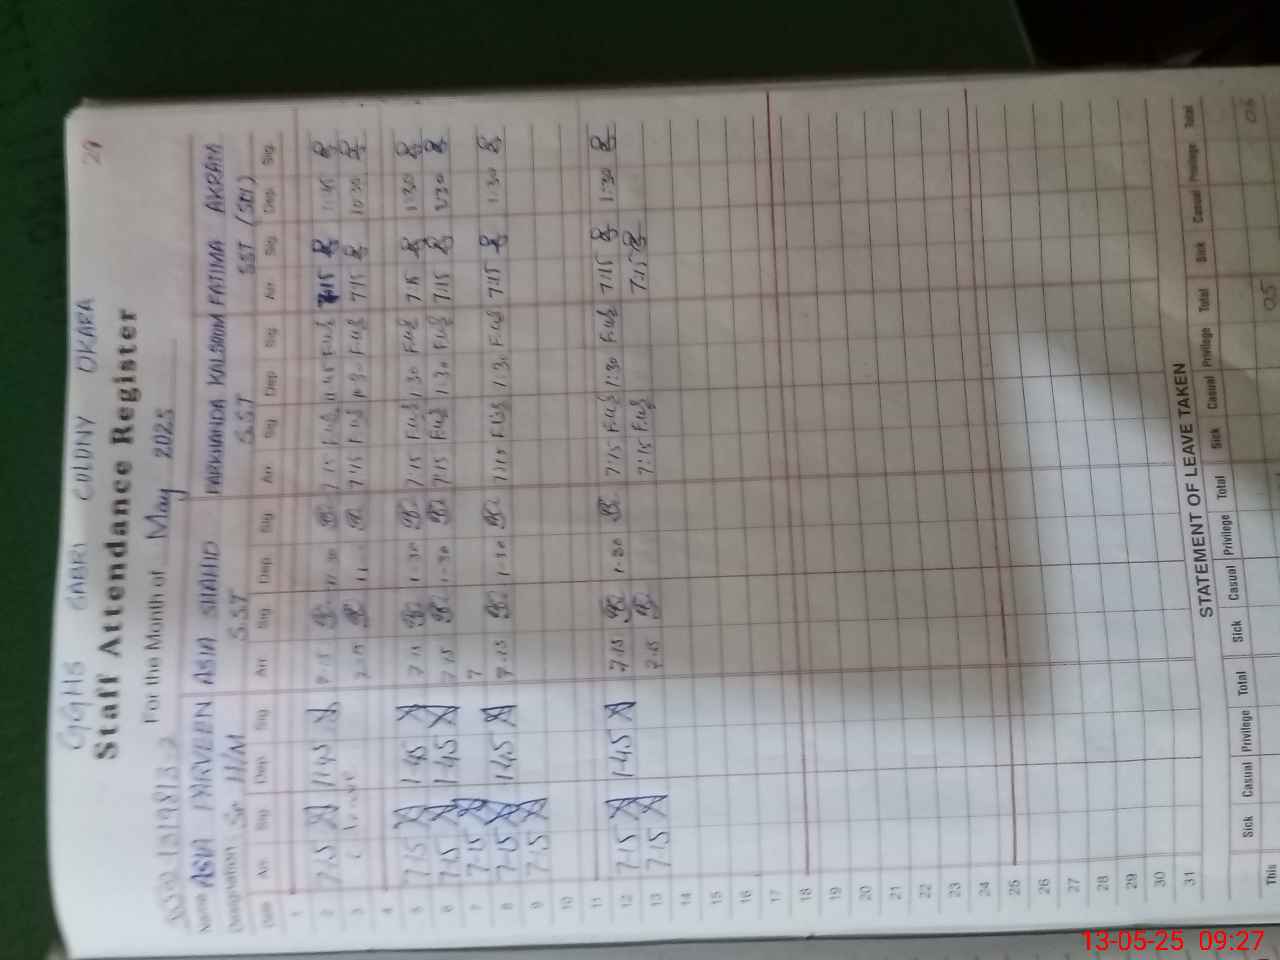 29
GGHS SABRI COLONY OKARA
Staff Attendance Register
For the Month of May 2025
Name ASIA PARVEEN ASIA SHAHID FARKHANDA KALSOOM FATIMA AKRAM
Designation Sr H/M S.S.T S.S.T SST (SCI)
Date Arr Sig Dep Sig Arr Sig Dep Sig Arr Sig Dep Sig Arr Sig Dep Sig
1
2 7.15 11.45 7.15 11.30 7.15 F.u.f 11.45 F.u.f 7:15
3 7.15 11 7:15 F.u.f 7:15 10:30
4
5 7.15 1.45 7.15 1.30 7:15 F.u.f 1.30 F.u.f 7:15 1:30
6 7.15 1.45 7.15 1.30 7:15 F.u.f 1.30 F.u.f 7:15
7 7.15 7
8 7.15 1.45 7.15 1.30 7:15 F.u.f 1.30 F.u.f 7:15 1:30
9 7.15
10
11
12 7.15 1.45 7.15 1.30 7:15 F.u.f 1:30 F.u.f 7:15 1:30
13 7.15 7.15 7:15 F.u.f 7:15
14
15
16
17
18
19
20
21
22
23
24
25
26
27
28
29
30
31
STATEMENT OF LEAVE TAKEN
Sick Casual Privilege Total Sick Casual Privilege Total Sick Casual Privilege Total Sick Casual Privilege Total
This 05
13-05-25 09:27